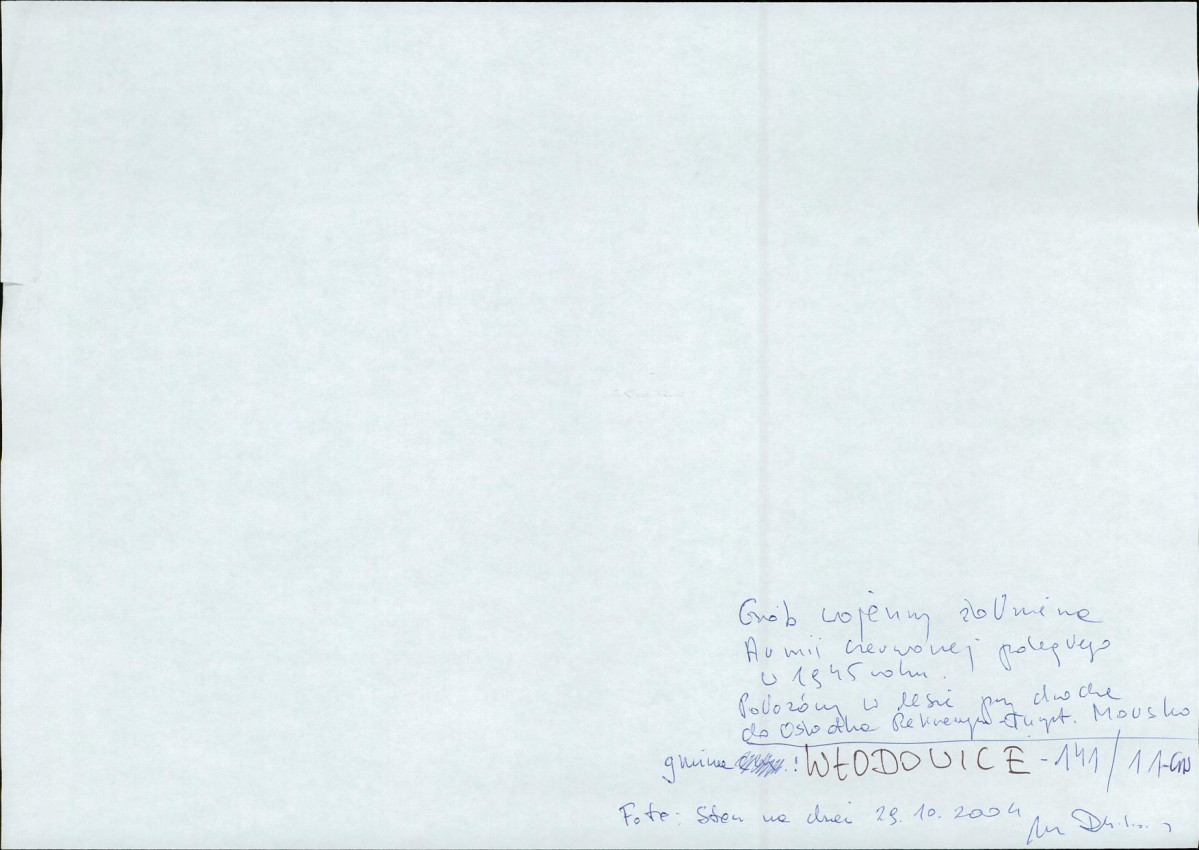 Grób wojenny żołnierza
Armii czerwonej poległego
w 1945 roku.
Położony w lesie przy drodze
do Ośrodka Rekreacyjno-Turyst. Morsko
gmina : WŁODOWICE - 141/11-GW
Foto: Stan na dzień 29.10.2004